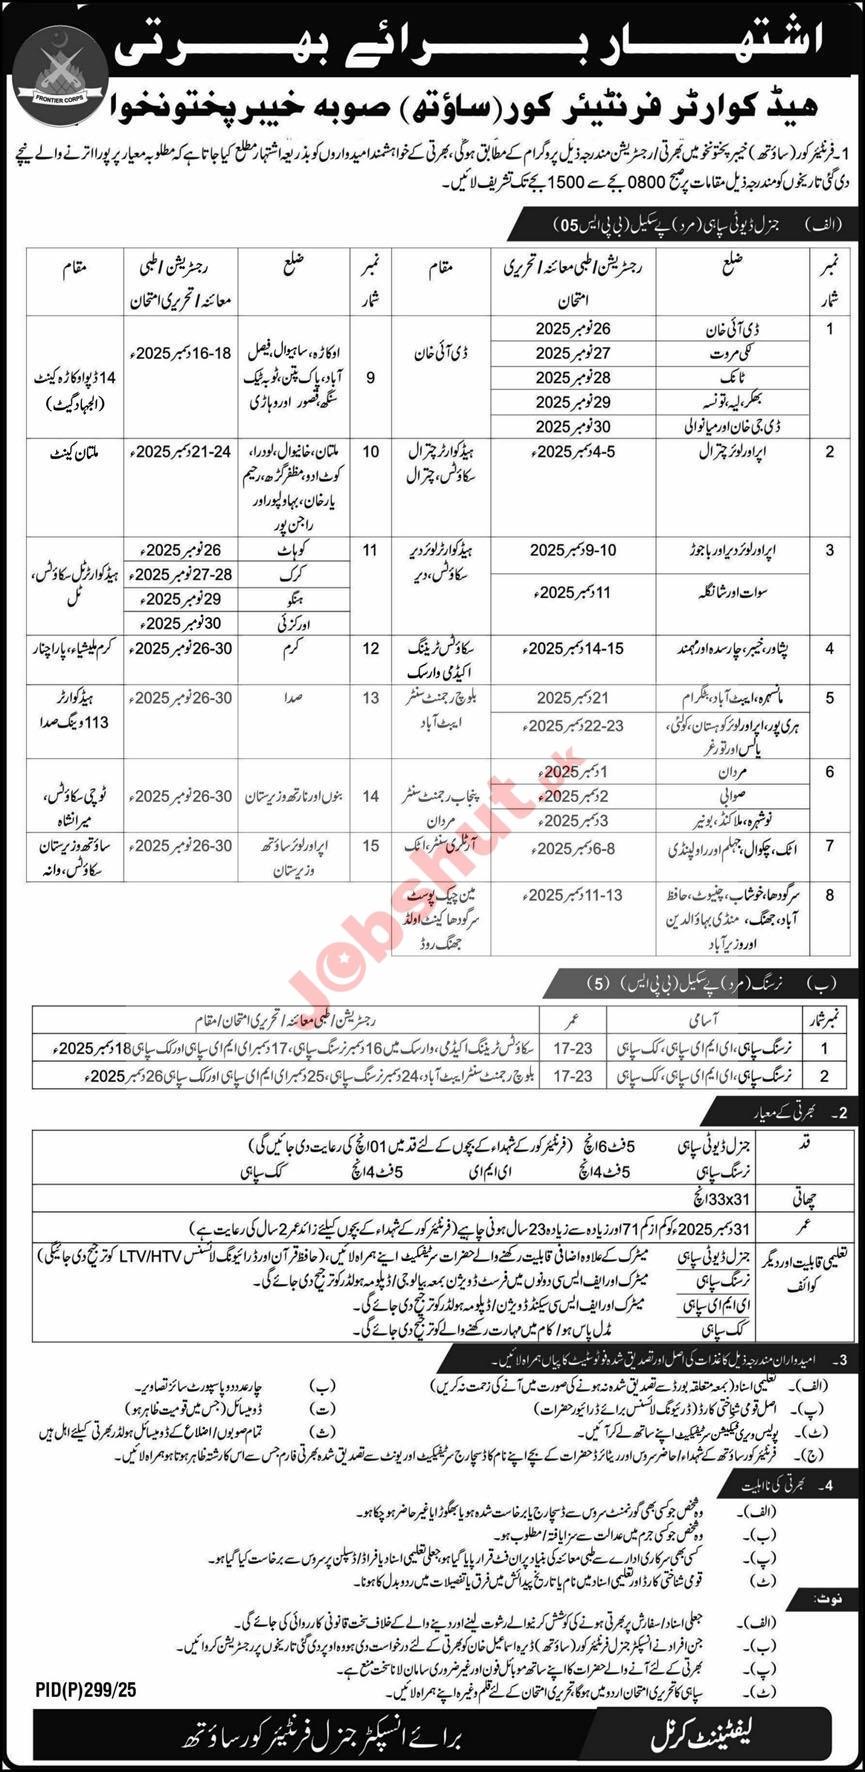 اشتہار برائے بھرتی
FRONTIER CORPS
ھیڈ کوارٹر فرنٹیئر کور (ساؤتھ) صوبہ خیبر پختونخوا
1۔ فرنٹیئر کور (ساؤتھ) خیبر پختونخوا میں بھرتی/رجسٹریشن مندرجہ ذیل پروگرام کے مطابق ہوگی، بھرتی کے خواہشمند امیدواروں کو بذریعہ اشتہار مطلع کیا جاتا ہے کہ مطلوبہ معیار پر پورا اترنے والے نیچے
دی گئی تاریخوں کو مندرجہ ذیل مقامات پر صبح 0800 بجے سے 1500 بجے تک تشریف لائیں۔
(الف) جنرل ڈیوٹی سپاہی (مرد) پے سکیل (بی پی ایس 05)
نمبر شمار | ضلع | رجسٹریشن/طبی معائنہ/تحریری امتحان | مقام
1 | ڈی آئی خان | 26 نومبر 2025 | ڈی آئی خان
لکی مروت | 27 نومبر 2025
ٹانک | 28 نومبر 2025
بھکر، لیہ، تونسہ | 29 نومبر 2025
ڈی جی خان اور میانوالی | 30 نومبر 2025
2 | اپر اور لوئر چترال | 4-5 دسمبر 2025ء | ہیڈ کوارٹر چترال سکاؤٹس، چترال
3 | اپر اور لوئر دیر اور باجوڑ | 9-10 دسمبر 2025 | ہیڈ کوارٹر لوئر دیر سکاؤٹس، دیر
سوات اور شانگلہ | 11 دسمبر 2025ء
4 | پشاور، خیبر، چارسدہ اور مہمند | 14-15 دسمبر 2025ء | سکاؤٹس ٹریننگ اکیڈمی وارسک
5 | مانسہرہ، ایبٹ آباد، بٹگرام | 21 دسمبر 2025 | بلوچ رجمنٹ سنٹر ایبٹ آباد
ہری پور، اپر اور لوئر کوہستان، کولئی، پالس اور تورغر | 22-23 دسمبر 2025ء
6 | مردان | 1 دسمبر 2025ء | پنجاب رجمنٹ سنٹر مردان
صوابی | 2 دسمبر 2025ء
نوشہرہ، ملاکنڈ، بونیر | 3 دسمبر 2025ء
7 | اٹک، چکوال، جہلم اور راولپنڈی | 6-8 دسمبر 2025ء | آرٹلری سنٹر، اٹک
8 | سرگودھا، خوشاب، چنیوٹ، حافظ آباد، جھنگ، منڈی بہاؤالدین اور وزیر آباد | 11-13 دسمبر 2025ء | مین چیک پوسٹ سرگودھا کینٹ اولڈ جھنگ روڈ
نمبر شمار | ضلع | رجسٹریشن/طبی معائنہ/تحریری امتحان | مقام
9 | اوکاڑہ، ساہیوال، فیصل آباد، پاک پتن، ٹوبہ ٹیک سنگھ، قصور اور وہاڑی | 16-18 دسمبر 2025ء | 14 ڈپو اوکاڑہ کینٹ (الجہاد گیٹ)
10 | ملتان، خانیوال، لودراں، کوٹ ادو، مظفر گڑھ، رحیم یار خان، بہاولپور اور راجن پور | 21-24 دسمبر 2025ء | ملتان کینٹ
11 | کوہاٹ | 26 نومبر 2025ء | ہیڈ کوارٹر ٹل سکاؤٹس، ٹل
کرک | 27-28 نومبر 2025ء
ہنگو | 29 نومبر 2025ء
اورکزئی | 30 نومبر 2025ء
12 | کرم | 26-30 نومبر 2025ء | کرم ملیشیاء، پارا چنار
13 | صدا | 26-30 نومبر 2025ء | ہیڈ کوارٹر 113 ونگ صدا
14 | بنوں اور نارتھ وزیرستان | 26-30 نومبر 2025ء | ٹوچی سکاؤٹس، میرانشاہ
15 | اپر اور لوئر ساؤتھ وزیرستان | 26-30 نومبر 2025ء | ساؤتھ وزیرستان سکاؤٹس، وانہ
Jobshut.pk
(ب) نرسنگ (مرد) پے سکیل (بی پی ایس) (5)
نمبر شمار | آسامی | عمر | رجسٹریشن/طبی معائنہ/تحریری امتحان/مقام
1 | نرسنگ سپاہی، ای ایم ای سپاہی، کک سپاہی | 17-23 | سکاؤٹس ٹریننگ اکیڈمی، وارسک میں 16 دسمبر نرسنگ سپاہی، 17 دسمبر ای ایم ای سپاہی اور کک سپاہی 18 دسمبر 2025ء
2 | نرسنگ سپاہی، ای ایم ای سپاہی، کک سپاہی | 17-23 | بلوچ رجمنٹ سنٹر ایبٹ آباد، 24 دسمبر نرسنگ سپاہی، 25 دسمبر ای ایم ای سپاہی اور کک سپاہی 26 دسمبر 2025ء
2۔ بھرتی کے معیار
قد | جنرل ڈیوٹی سپاہی 5 فٹ 6 انچ (فرنٹیئر کور کے شہداء کے بچوں کے لئے قد میں 01 انچ کی رعایت دی جائیں گی)
نرسنگ سپاہی 5 فٹ 4 انچ ای ایم ای 5 فٹ 4 انچ کک سپاہی
چھاتی | 33x31 انچ
عمر | 31 دسمبر 2025ء کو کم از کم 71 اور زیادہ سے زیادہ 23 سال ہونی چاہیے (فرنٹیئر کور کے شہداء کے بچوں کیلئے زائد عمر 2 سال کی رعایت ہے)
تعلیمی قابلیت اور دیگر کوائف | جنرل ڈیوٹی سپاہی میٹرک کے علاوہ اضافی قابلیت رکھنے والے حضرات سرٹیفکیٹ اپنے ہمراہ لائیں، (حافظ قرآن اور ڈرائیونگ لائسنس LTV/HTV کو ترجیح دی جائیگی)
نرسنگ سپاہی میٹرک اور ایف ایس سی دونوں میں فرسٹ ڈویژن بمعہ بیالوجی/ڈپلومہ ہولڈر کو ترجیح دی جائے گی۔
ای ایم ای سپاہی میٹرک اور ایف ایس سی سیکنڈ ڈویژن/ڈپلومہ ہولڈر کو ترجیح دی جائے گی۔
کک سپاہی مڈل پاس ہو/کام میں مہارت رکھنے والے کو ترجیح دی جائے گی۔
3۔ امیدواران مندرجہ ذیل کاغذات کی اصل اور تصدیق شدہ فوٹو سٹیٹ کاپیاں ہمراہ لائیں۔
(الف)۔ تعلیمی اسناد (بمعہ متعلقہ بورڈ سے تصدیق شدہ نہ ہونے کی صورت میں آنے کی زحمت نہ کریں) (ب) چار عدد پاسپورٹ سائز تصاویر۔
(پ)۔ اصل قومی شناختی کارڈ (ڈرائیونگ لائسنس برائے ڈرائیور حضرات) (ت) ڈومیسائل (جس میں قومیت ظاہر ہو)
(ٹ)۔ پولیس ویری فیکیشن سرٹیفکیٹ اپنے ساتھ لے کر آئیں۔ (ث) تمام صوبوں/اضلاع کے ڈومیسائل ہولڈر بھرتی کیلئے اہل ہیں
(ج)۔ فرنٹیئر کور ساؤتھ کے شہداء/حاضر سروس اور ریٹائرڈ حضرات کے بچے اپنے نام کا ڈسچارج سرٹیفکیٹ اور یونٹ سے تصدیق شدہ بھرتی فارم جس سے اس کا رشتہ ظاہر ہوتا ہو ہمراہ لائیں۔
4۔ بھرتی کی نااہلیت
(الف)۔ وہ شخص جو کسی بھی گورنمنٹ سروس سے ڈسچارج یا برخاست شدہ ہو یا بھگوڑا یا غیر حاضر ہو چکا ہو۔
(ب)۔ وہ شخص جو کسی جرم میں عدالت سے سزا یافتہ/مطلوب ہو۔
(پ)۔ کسی بھی سرکاری ادارے سے طبی معائنہ کی بنیاد پر ان فٹ قرار پایا گیا ہو، جعلی تعلیمی اسناد یا فراڈ/ڈسپلن پر سروس سے برخاست کیا گیا ہو۔
(ٹ) قومی شناختی کارڈ اور تعلیمی اسناد میں نام یا تاریخ پیدائش میں فرق یا تفصیلات میں ردوبدل کا ہونا۔
نوٹ:
(الف)۔ جعلی اسناد/سفارش پر بھرتی ہونے کی کوشش کرنیوالے رشوت لینے اور دینے والے کے خلاف سخت قانونی کارروائی کی جائے گی۔
(ب)۔ جن افراد نے انسپکٹر جنرل فرنٹیئر کور (ساؤتھ) ڈیرہ اسماعیل خان کو بھرتی کے لئے درخواست دی ہو وہ اوپر دی گئی تاریخوں پر رجسٹریشن کروائیں۔
(پ)۔ بھرتی کے لئے آنے والے حضرات کا اپنے ساتھ موبائل فون اور غیر ضروری سامان لانا سخت منع ہے۔
(ٹ)۔ سپاہی کا تحریری امتحان اردو میں ہوگا، تحریری امتحان کے لئے قلم وغیرہ اپنے ہمراہ لائیں۔
PID(P)299/25
لیفٹیننٹ کرنل
برائے انسپکٹر جنرل فرنٹیئر کور ساؤتھ